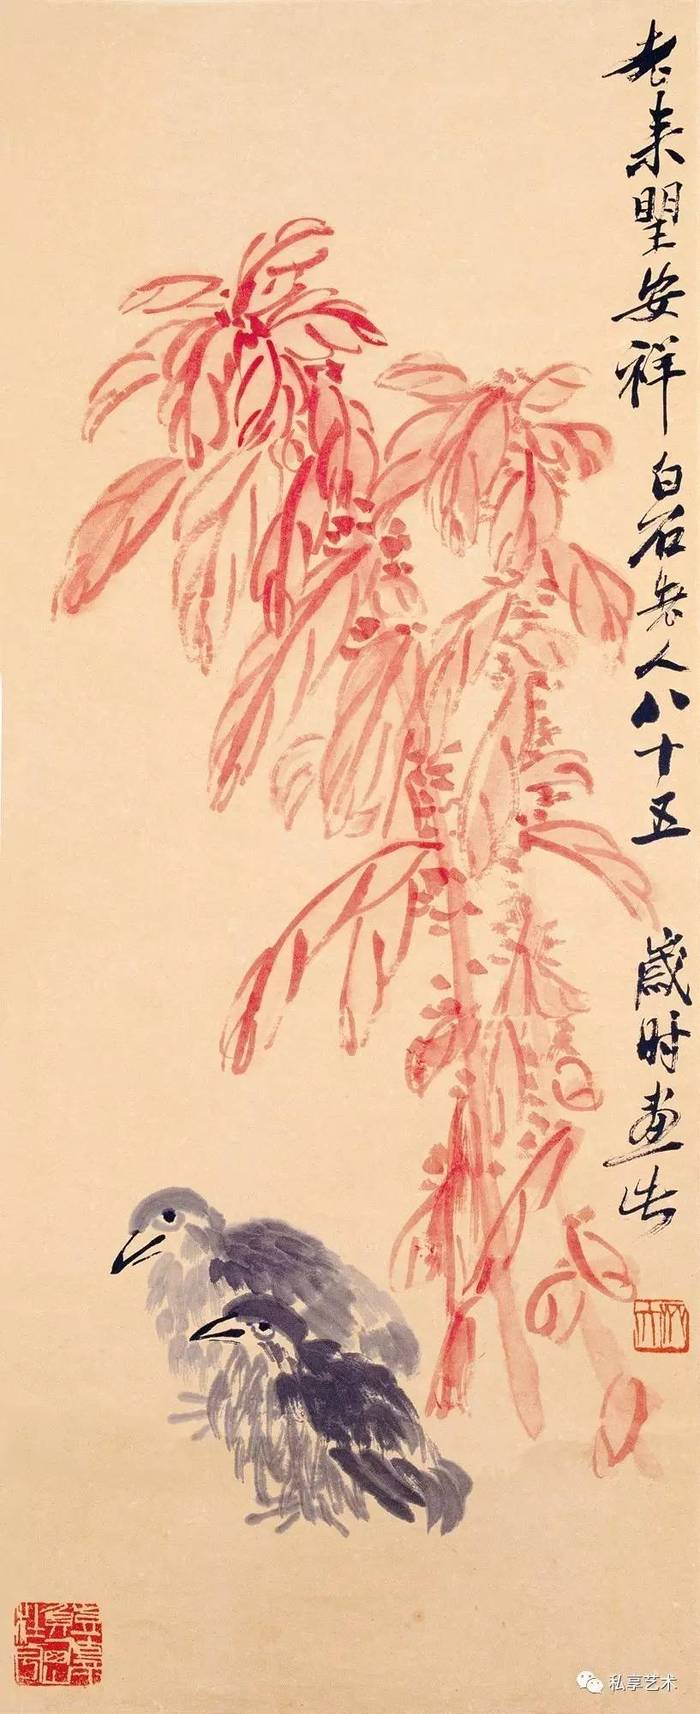 老来望安祥 白石老人八十五
歲时画
私享艺术